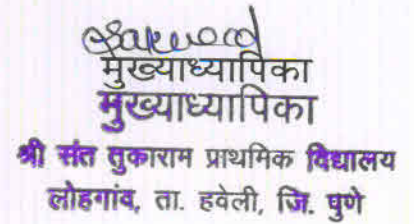 मुख्याध्यापिका
मुख्याध्यापिका
श्री संत तुकाराम प्राथमिक विद्यालय
लोहगांव, ता. हवेली, जि. पुणे